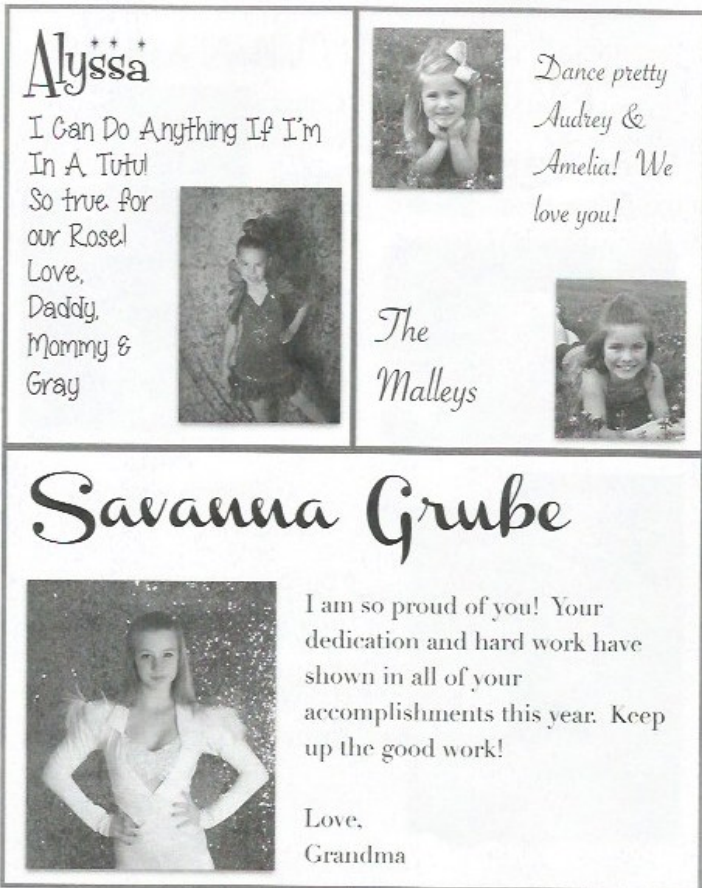 Alyssa
I Can Do Anything If I'm
In A Tutu!
So true for
our Rose!
Love,
Daddy,
Mommy &
Gray
Dance pretty
Audrey &
Amelia! We
love you!
The
Malleys
Savanna Grube
I am so proud of you! Your
dedication and hard work have
shown in all of your
accomplishments this year. Keep
up the good work!
Love,
Grandma